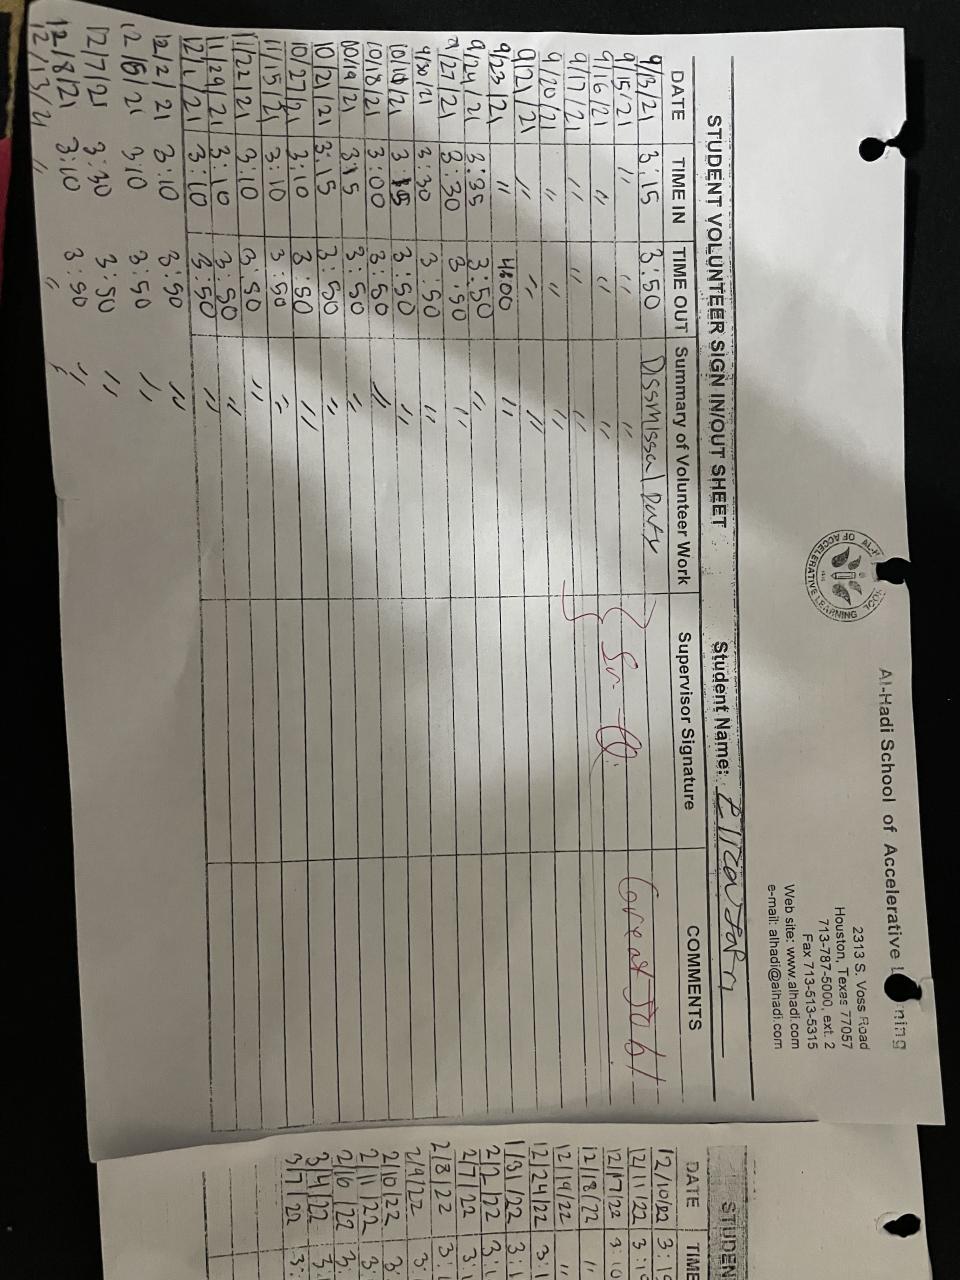 Al-Hadi School of Accelerative L ning
2313 S. Voss Road
Houston, Texas 77057
713-787-5000, ext. 2
Fax 713-513-5315
Web site: www.alhadi.com
e-mail: alhadi@alhadi.com
STUDENT VOLUNTEER SIGN IN/OUT SHEET Student Name:
DATE TIME IN TIME OUT Summary of Volunteer Work Supervisor Signature COMMENTS
9/13/21 3:15 3:50 Dssmissal Duty Great Job!
9/15/21 " " "
9/16/21 " " " Sr.
9/17/21 " " "
9/20/21 " " "
9/21/21 " " "
9/23/21 " 4:00 "
9/24/21 3:35 3:50 "
9/27/21 3:30 3:50 "
9/30/21 3:30 3:50 "
10/14/21 3:15 3:50 "
10/18/21 3:00 3:50 "
10/19/21 3:15 3:50 "
10/21/21 3:15 3:50 "
10/27/21 3:10 3:50 "
11/15/21 3:10 3:50 "
11/22/21 3:10 3:50 "
11/29/21 3:10 3:50 "
12/1/21 3:10 3:50 "
12/2/21 3:10 3:50 "
12/6/21 3:10 3:50 "
12/7/21 3:30 3:50 "
12/8/21 3:10 3:50 "
12/13/21 " " "
STUDEN
DATE TIME
12/10/22 3:15
12/11/22 3:1
12/17/22 3:10
12/18/22 "
12/19/22 "
12/24/22 3:1
1/31/22 3:1
2/2/22 3:1
2/7/22 3:1
2/8/22 3:1
2/9/22 3:
2/10/22 3:
2/11/22 3:
2/16/22 3:
3/4/22 3:
3/7/22 3: